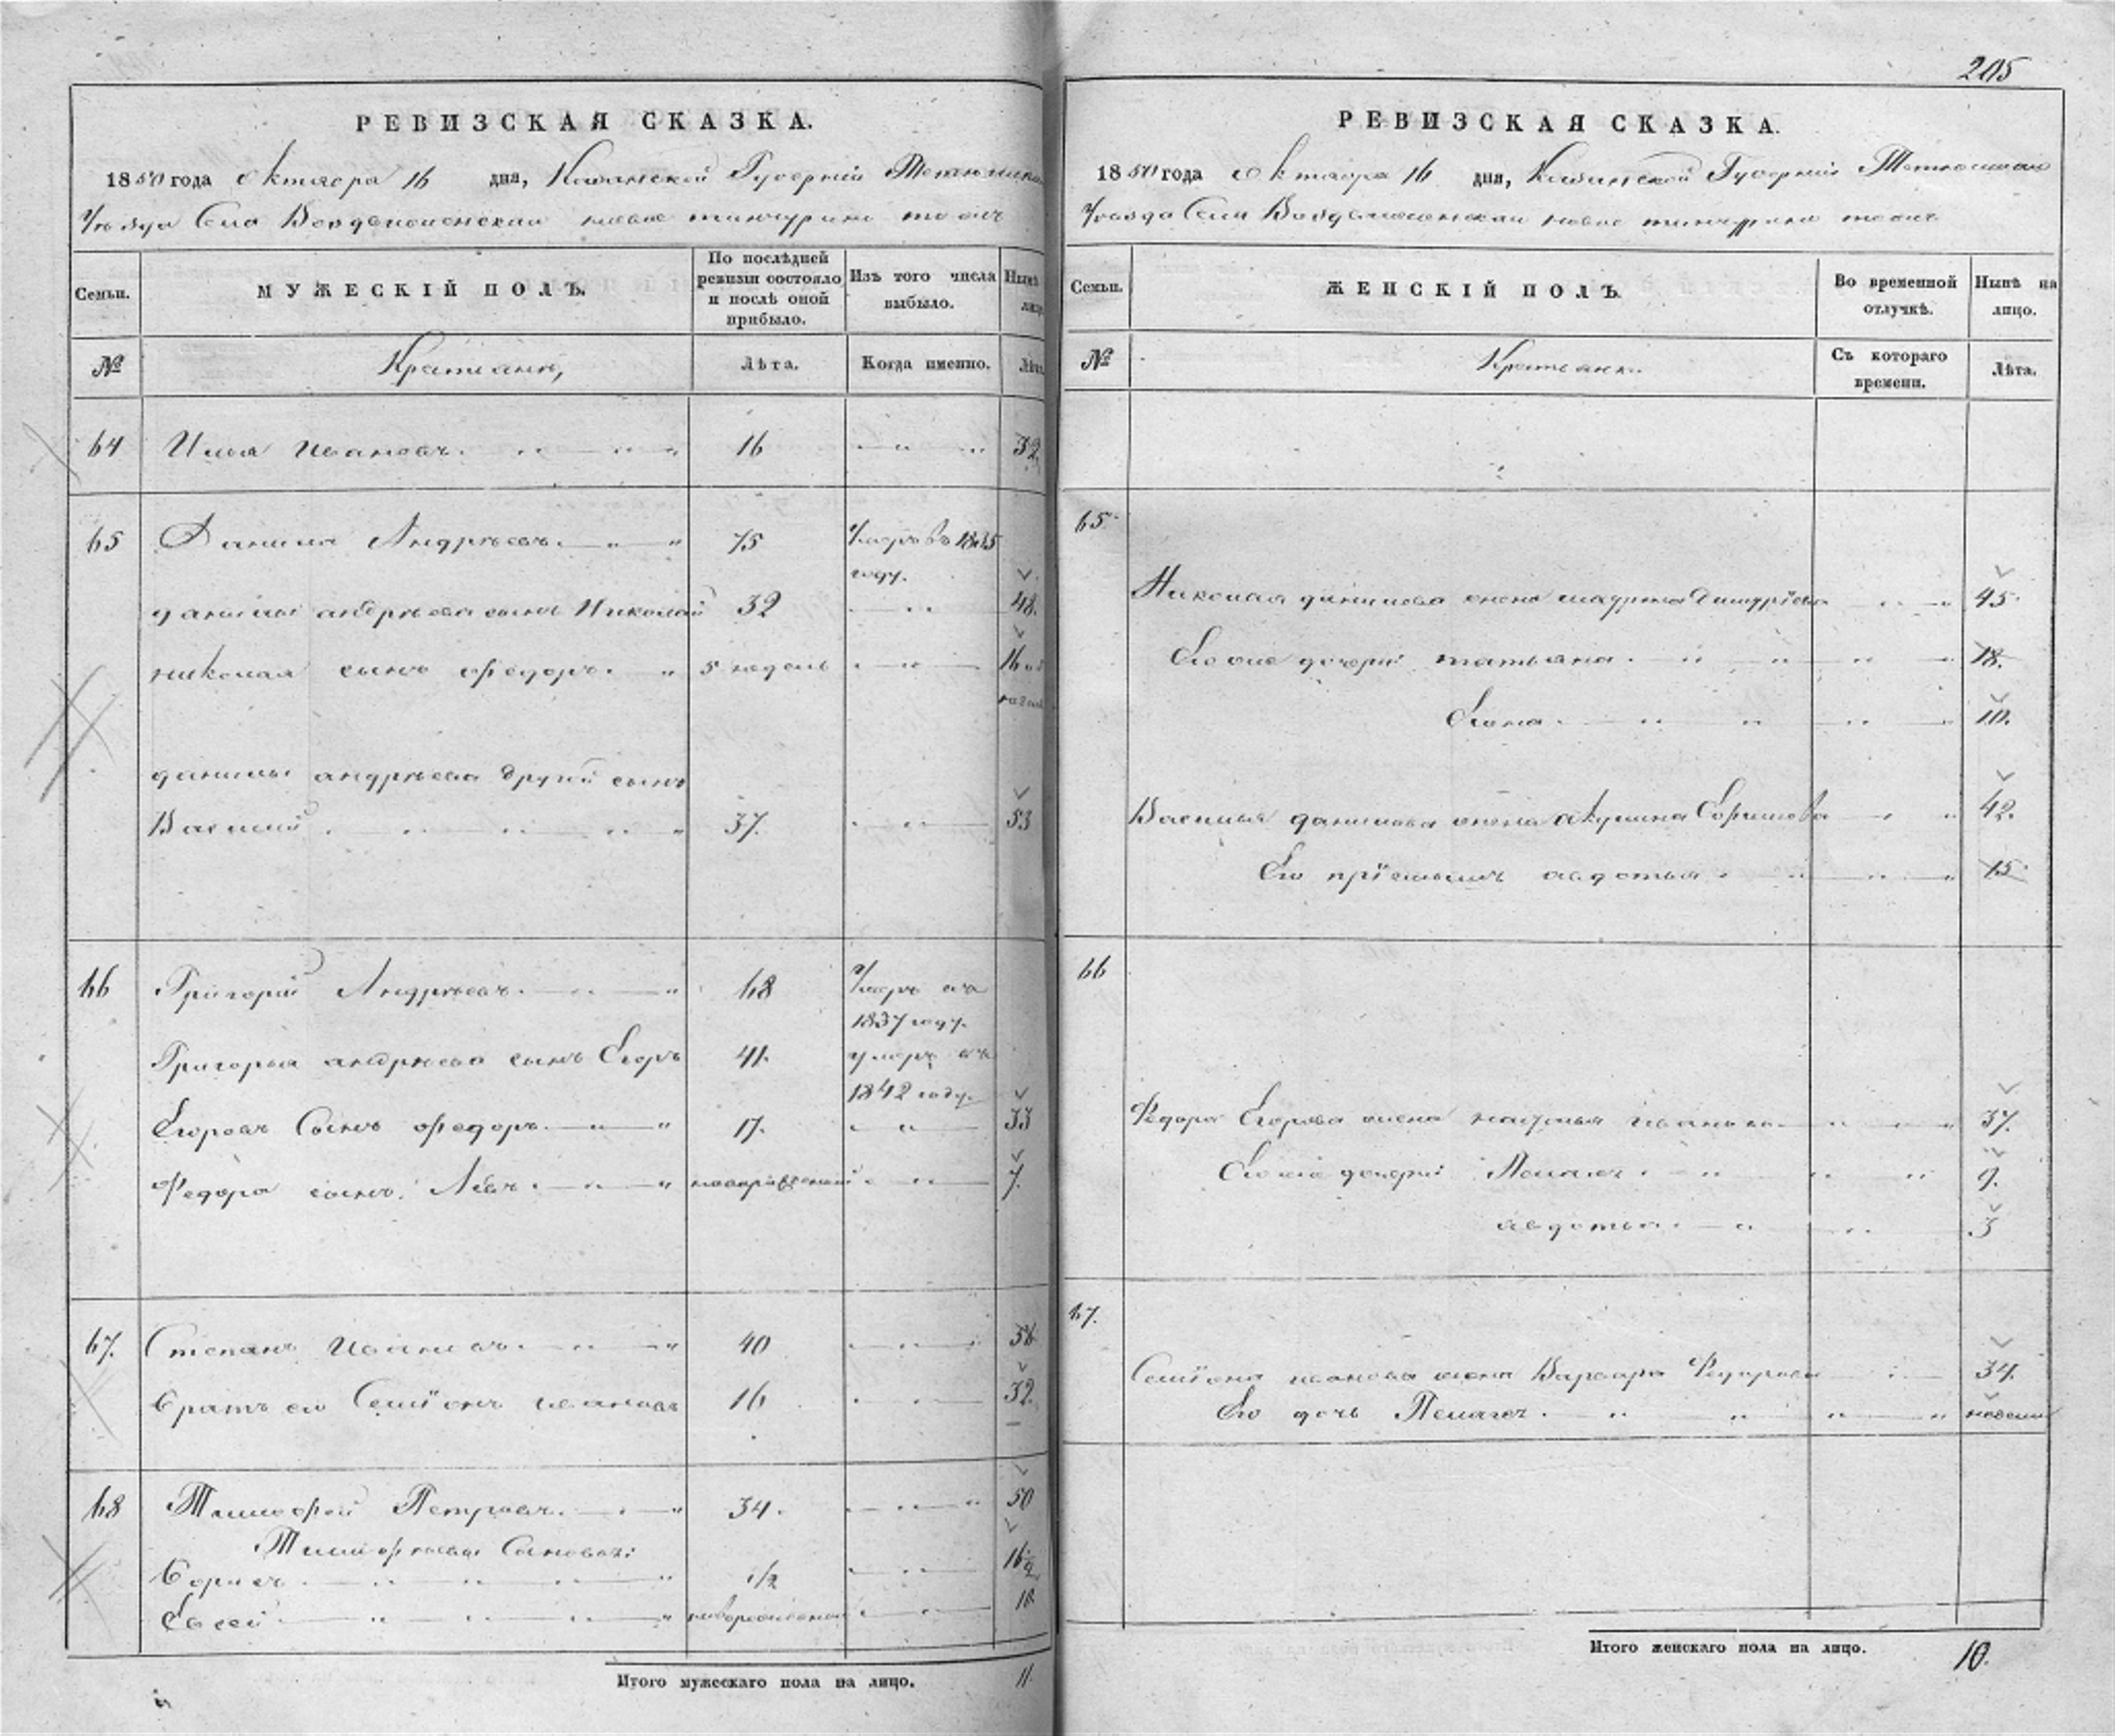 205
РЕВИЗСКАЯ СКАЗКА.
1850 года октября 16 дня, Казанской Губернии
уезда Села Воздвиженскаго новое тинчурино тожъ
Семьи.
МУЖЕСКІЙ ПОЛЪ.
По послѣдней ревизіи состояло и послѣ оной прибыло.
Изъ того числа выбыло.
Нынѣ
№
Крестьяне,
Лѣта.
Когда именно.
Лѣта.
64 Илья Ивановъ 16 32.
65 Данила Андрѣевъ 75 Умеръ въ 1835
году.
данилы андрѣева сынъ Николай 32 48.
николая сынъ федоръ 5 недель 16
данилы андрѣева другой сынъ
Василий 37. 53
66 Григорій Андрѣевъ 68 Умеръ въ
1837 году.
Григорья андрѣева сынъ Егоръ 41. умеръ въ
1842 году.
Егоровъ Сынъ федоръ 17. 33
Федора сынъ Левъ новорожденный 7.
67. Степанъ Ивановъ 40 56
братъ его Семіонъ ивановъ 16 32.
68 Тимофей Петровъ 34. 50
Тимофеевы Сыновья:
Борисъ 1/2 16 1/2
Евсей новорожденный 10.
Итого мужескаго пола на лицо. 11.
РЕВИЗСКАЯ СКАЗКА.
1850 года октября 16 дня, Казанской Губерніи
уезда Села Воздвиженскаго новое тинчурино тожъ
Семьи.
ЖЕНСКІЙ ПОЛЪ.
Во временной отлучкѣ.
Нынѣ на лицо.
№
Крестьянки.
Съ котораго времени.
Лѣта.
65.
Николая данилова жена 45.
Его же дочери татьяна 18.
Елена 10.
Василья данилова жена акулина Борисова 42.
Его пріемышъ авдотья 15
66
Федора Егорова жена настасья иванова 37.
Его же дочери Пелагея 9.
авдотья 3
67.
Семіона иванова жена Варвара Федорова 34.
Его дочь Пелагея
Итого женскаго пола на лицо. 10.